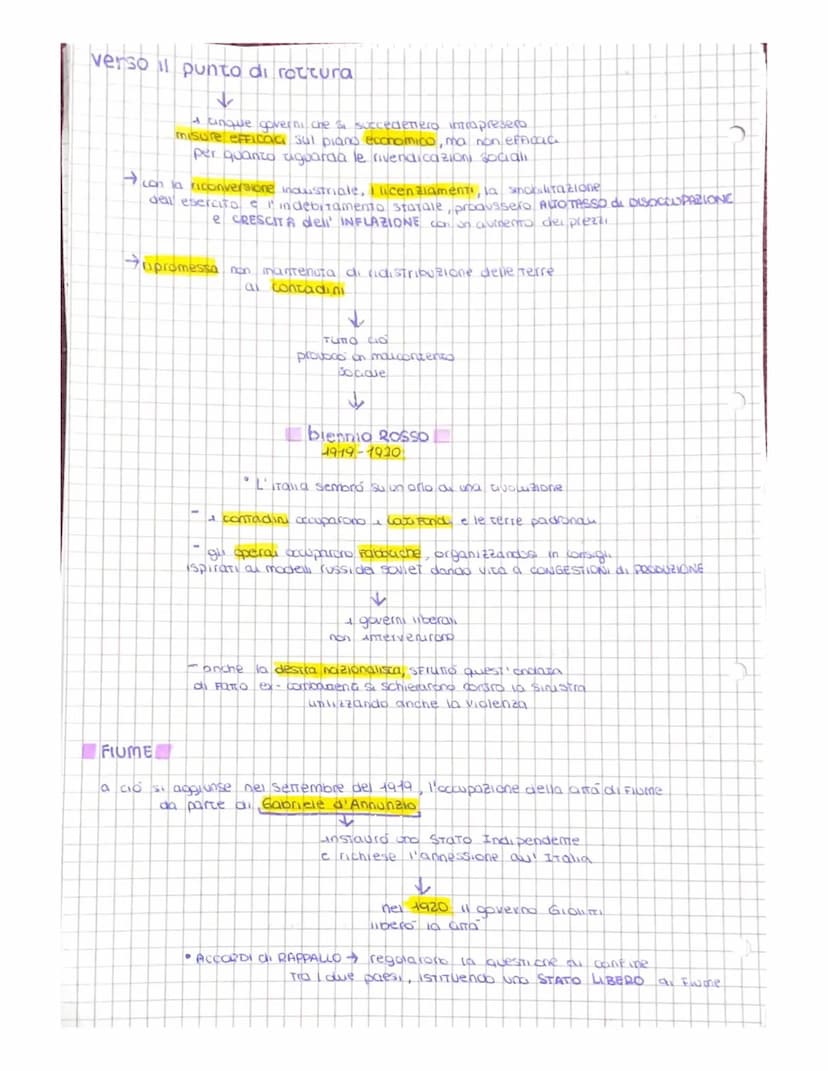 verso il punto di rottura
↓
I cinque governi che si succedettero intrapresero
misure efficaci sul piano economico, ma non efficaci
per quanto riguarda le rivendicazioni sociali
→ con la riconversione industriale, i licenziamenti, la smobilitazione
dell'esercito e l'indebitamento statale, produssero ALTO TASSO di DISOCCUPAZIONE
e CRESCITA dell'INFLAZIONE con un aumento dei prezzi
→ promessa non mantenuta di ridistribuzione delle terre
ai contadini
↓
Tutto ciò
provocò un malcontento
sociale
↓
biennio ROSSO
1919-1920
• L'Italia sembrò su un orlo di una rivoluzione
- I contadini occuparono i latifondi e le terre padronali
- gli operai occuparono fabbriche, organizzandosi in consigli
ispirati ai modelli russi dei soviet dando vita a CONGESTIONI di PRODUZIONE
↓
I governi liberali
non intervenirono
- anche la destra nazionalista, sfruttò quest'ondata
di fatto ex-combattenti si schierarono contro la sinistra
utilizzando anche la violenza
FIUME
a ciò si aggiunse nel settembre del 1919, l'occupazione della città di Fiume
da parte di Gabriele d'Annunzio
↓
instaurò uno Stato Indipendente
e richiese l'annessione all'Italia
↓
nel 1920 il governo Giolitti
liberò la città
• ACCORDI di RAPPALLO → regolarono la questione di confine
tra i due paesi, istituendo uno STATO LIBERO di Fiume